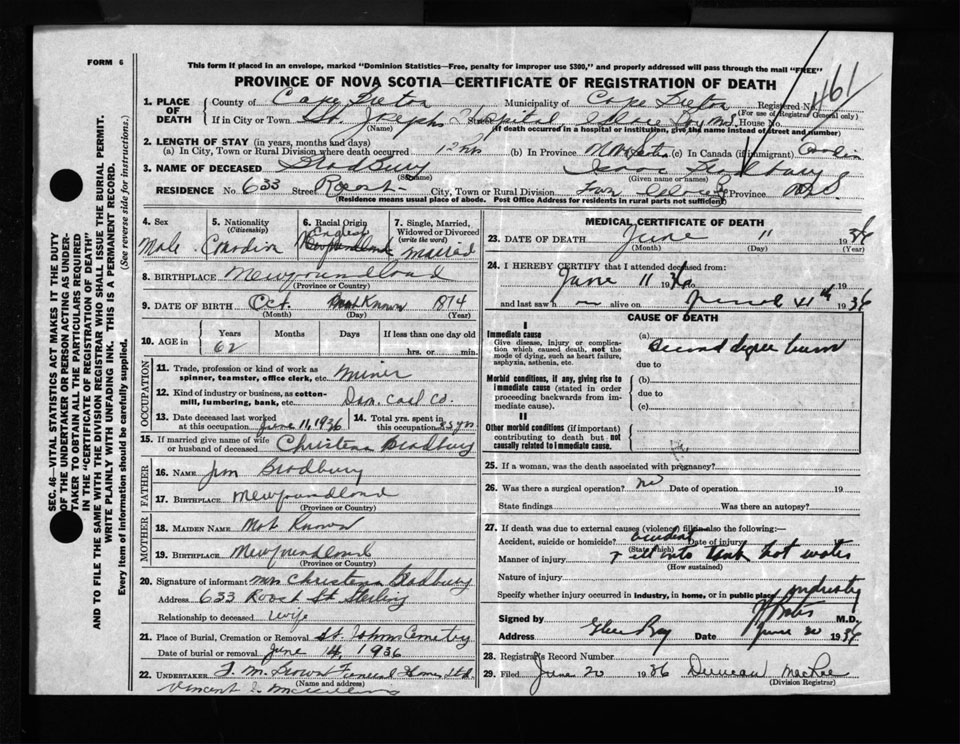 FORM 6
This form if placed in an envelope, marked "Dominion Statistics—Free, penalty for improper use $300," and properly addressed will pass through the mail "FREE"
PROVINCE OF NOVA SCOTIA—CERTIFICATE OF REGISTRATION OF DEATH
161
SEC. 46—VITAL STATISTICS ACT MAKES IT THE DUTY
OF THE UNDERTAKER OR PERSON ACTING AS UNDER-
TAKER TO OBTAIN ALL THE PARTICULARS REQUIRED
IN THE "CERTIFICATE OF REGISTRATION OF DEATH"
AND TO FILE THE SAME WITH THE DIVISION REGISTRAR WHO SHALL ISSUE THE BURIAL PERMIT.
WRITE PLAINLY WITH UNFADING INK. THIS IS A PERMANENT RECORD.
Every item of information should be carefully supplied. (See reverse side for instructions.)
1. PLACE OF DEATH County of Cape Breton Municipality of Cape Breton Registered No.
(For use of Registrar General only)
If in City or Town St. Josephs Hospital, Glace Bay N.S. House No.
(Name) (If death occurred in a hospital or institution, give the name instead of street and number)
2. LENGTH OF STAY (in years, months and days)
(a) In City, Town or Rural Division where death occurred 12 hrs (b) In Province (c) In Canada (if immigrant)
3. NAME OF DECEASED Bradbury
(Surname) (Given name or names)
RESIDENCE No. 633 Street Roost City, Town or Rural Division Town Glace Bay Province N.S.
(Residence means usual place of abode. Post Office Address for residents in rural parts not sufficient)
4. Sex Male
5. Nationality (Citizenship) Canadian
6. Racial Origin English
7. Single, Married, Widowed or Divorced (write the word) Married
8. BIRTHPLACE Newfoundland
(Province or Country)
9. DATE OF BIRTH Oct. Not Known 1874
(Month) (Day) (Year)
10. AGE in Years 62 Months Days If less than one day old hrs. or min.
OCCUPATION
11. Trade, profession or kind of work as spinner, teamster, office clerk, etc. Miner
12. Kind of industry or business, as cotton-mill, lumbering, bank, etc. Dom. Coal Co.
13. Date deceased last worked at this occupation June 11, 1936 14. Total yrs. spent in this occupation 25 yrs.
15. If married give name of wife or husband of deceased Christena Bradbury
FATHER
16. NAME Jim Bradbury
17. BIRTHPLACE Newfoundland
(Province or Country)
MOTHER
18. MAIDEN NAME Not Known
19. BIRTHPLACE Newfoundland
(Province or Country)
20. Signature of informant Mrs Christena Bradbury
Address 633 Roost St. Sterling
Relationship to deceased Wife
21. Place of Burial, Cremation or Removal St. Johns Cemetry
Date of burial or removal June 14, 1936
22. UNDERTAKER Funeral Home Ltd.
(Name and address)
Vincent
MEDICAL CERTIFICATE OF DEATH
23. DATE OF DEATH June 11 1936
(Month) (Day) (Year)
24. I HEREBY CERTIFY that I attended deceased from:
June 11 1936 to 19
and last saw h m alive on June 11th 1936
CAUSE OF DEATH
I
Immediate cause
Give disease, injury or complication which caused death, not the mode of dying, such as heart failure, asphyxia, asthenia, etc.
(a) Second degree burns
due to
Morbid conditions, if any, giving rise to immediate cause (stated in order proceeding backwards from immediate cause).
(b)
due to
(c)
II
Other morbid conditions (if important) contributing to death but not causally related to immediate cause.
25. If a woman, was the death associated with pregnancy?
26. Was there a surgical operation? no Date of operation 19
State findings Was there an autopsy?
27. If death was due to external causes (violence) fill in also the following:
Accident, suicide or homicide? accident Date of injury 19
(State which)
Manner of injury Fell into tank hot water
(How sustained)
Nature of injury
Specify whether injury occurred in industry, in home, or in public place industry
Signed by M.D.
Address Glace Bay Date June 20 1936
28. Registrar's Record Number
29. Filed June 20 1936 Duncan MacRae
(Division Registrar)